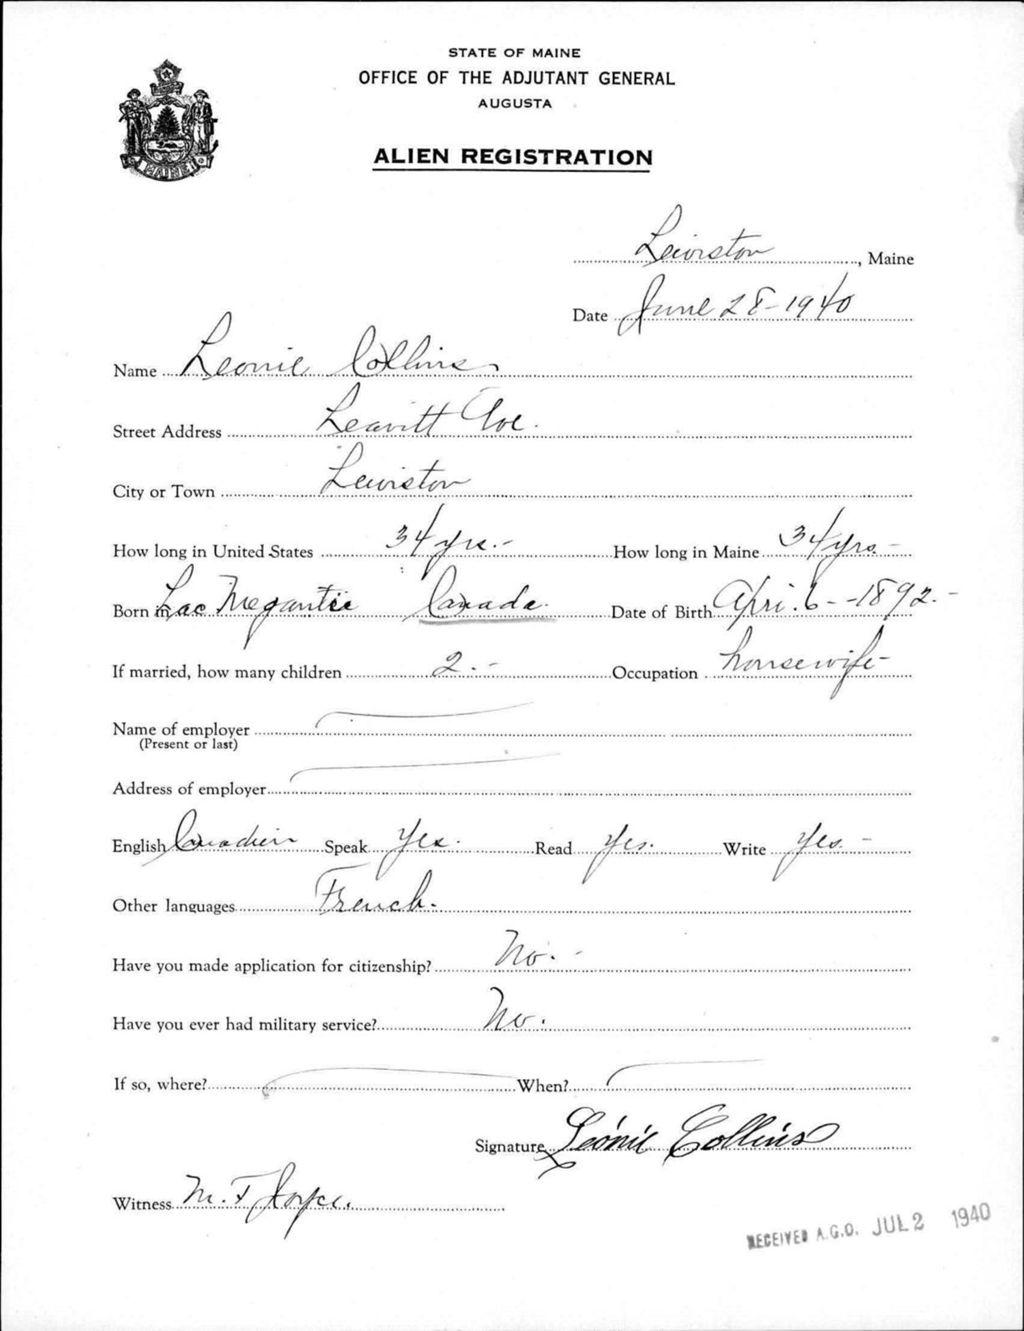 STATE OF MAINE
OFFICE OF THE ADJUTANT GENERAL
AUGUSTA
MAINE
ALIEN REGISTRATION
Lewiston, Maine
Date June 28-1940
Name Leonie Collins
Street Address Leavitt Ave.
City or Town Lewiston
How long in United States 34 yrs.- How long in Maine 34 yrs.-
Born in Lac Megantic Canada. Date of Birth Apri. 6--1892.-
If married, how many children 2.- Occupation housewife-
Name of employer
(Present or last)
Address of employer
English Canadien Speak Yes. Read Yes. Write Yes.-
Other languages French.
Have you made application for citizenship? No.-
Have you ever had military service? No.
If so, where? When?
Signature Léonie Collins
Witness M. F. Joyce.
RECEIVED A.G.O. JUL 2 1940